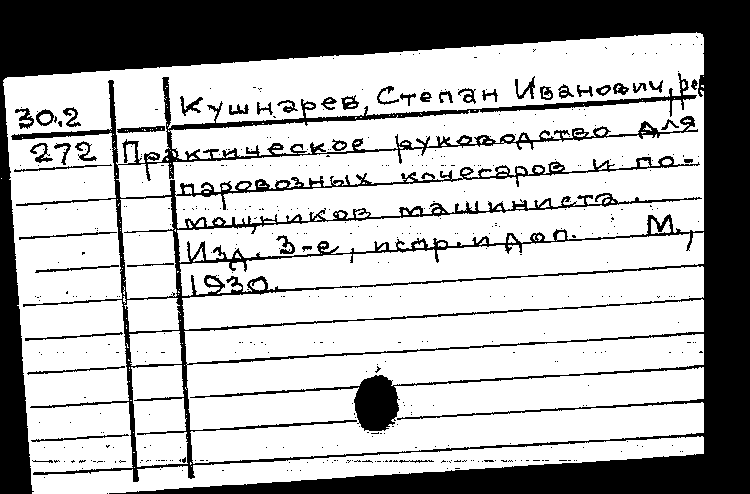 30.2 Кушнарев, Степан Иванович, ред
272 Практическое руководство для
паровозных кочегаров и по-
мощников машиниста.
Изд. 3-е, испр. и доп. М.,
1930.